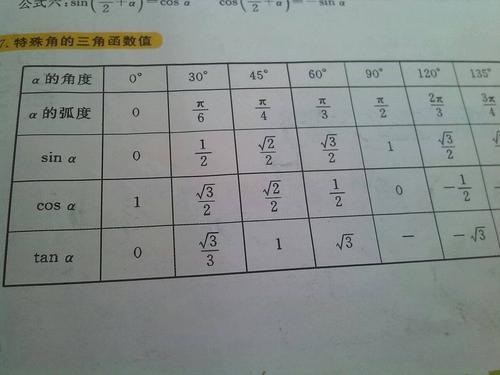 公式六:sin(π/2+α)=cos α cos(π/2+α)=-sin α
7. 特殊角的三角函数值
α的角度 0° 30° 45° 60° 90° 120° 135°
α的弧度 0 π/6 π/4 π/3 π/2 2π/3 3π/4
sin α 0 1/2 √2/2 √3/2 1 √3/2
cos α 1 √3/2 √2/2 1/2 0 -1/2
tan α 0 √3/3 1 √3 - -√3